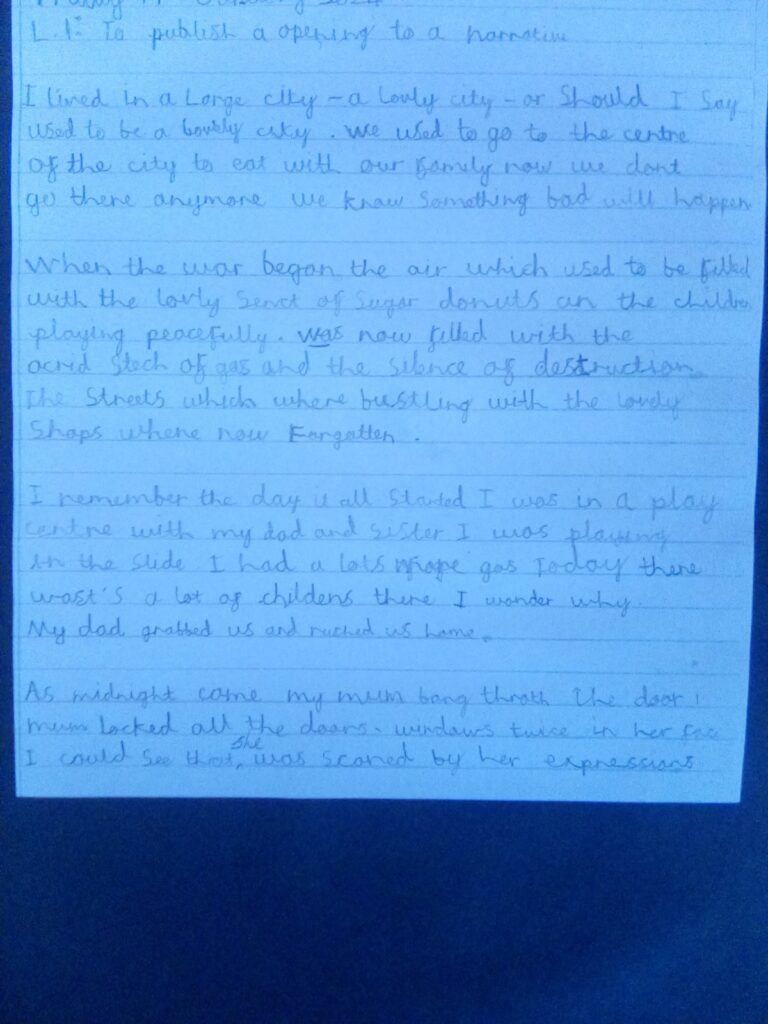 L.I: To publish a opening to a narrative
I lived in a Large city - a lovly city - or Should I Say
used to be a lovely city. We used to go to the centre
of the city to eat with our family now we dont
go there anymore we know something bad will happen
When the war began the air which used to be filled
with the lovly Senct of Sugar donuts an the children
playing peacefully. was now filled with the
acrid Stech of gas and the silence of destruction.
The Streets which where bustling with the lovely
Shops where now Forgatten.
I remember the day it all Started I was in a play
centre with my dad and sister I was playing
in the slide I had a lots gas Today there
wast's a lot of childens there I wonder why.
My dad grabbed us and ruched us home.
As midnight came my mum bang throth the door
mum locked all the doors. windows twice in her
I could See that, she was scared by her expressions